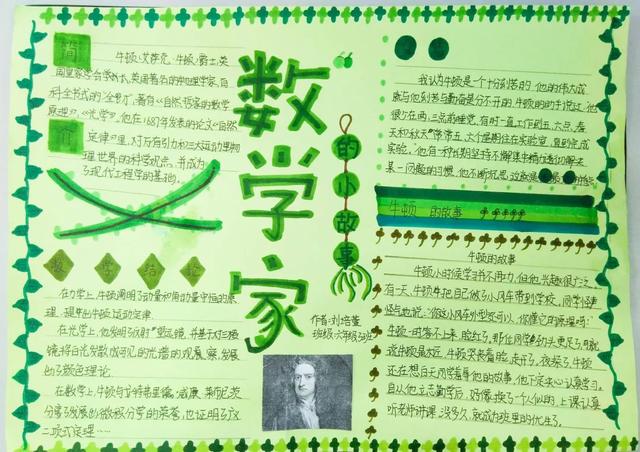 简介
牛顿·艾萨克·牛顿·爵士,英
国皇家学会会长,英国著名的物理学家,百
科全书式的“全才”,著有《自然哲学的数学
原理》、《光学》。他在1687年发表的论文《自然
定律》里,对万有引力和三大运动定律
世界的科学观点,并成为
了现代工程学的基础。
数学结论
在力学上,牛顿阐明了动量和角动量守恒的原
理,提出牛顿运动定律
在光学上,他发明了反射望远镜,并基于对三棱
镜将白光发散成可见的光谱的观察,发展
出了颜色理论。
在数学上,牛顿与戈特弗里德·威廉·莱布尼茨
分享了发展出微积分学的荣誉,也证明了广
二项式定理……
数学家
的小故事
作者:刘培
班级:六年级
我认为牛顿是一个十分刻苦的,他的伟大成
就与他刻苦与勤奋是分不开的,牛顿的助手说过,他
很少在两、三点前睡觉,有时一直工作到五、六点。春
天和秋天常常五、六个星期住在实验室,直到完成
实验。他有一种长期坚持不懈集中精力透彻解决
某一问题的习惯,他不断沉思,这就是
牛顿 的故事
牛顿的故事
牛顿小时候学习书不用功,但他兴趣很广泛。
有一天,牛顿把自己做的小风车带到学校,同学
他说:“你这小风车外型还可以,你懂它的原理吗?”
牛顿一时答不上来,脸红了,那位同学
说牛顿是大,牛顿哭丧着脸,走开了,夜深了,牛顿
还在想白天同学羞辱他的故事,他下定决心认真学习。
自从他立志勤学后,好像换了个人似的,上课认真
听老师讲课,没多久,就成为班里的优生了。